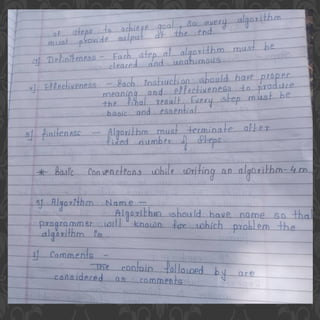 of steps to achieve goal, so every algorithm
must provide output at the end.
Definiteness - Each step of algorithm must be
cleared and
Effectiveness - Each instruction should have proper
meaning and effectiveness to produce
the final result. Every step must be
basic and essential.
5] finiteness - Algorithm must terminate after
fixed number of steps
* Basic Convenctions while writing an algorithm - 4m
Algorithm Name -
Algorithm should have name so that
programmer will known for which problem the
algorithm is
Comments -
The contain followed by are
considered as comments